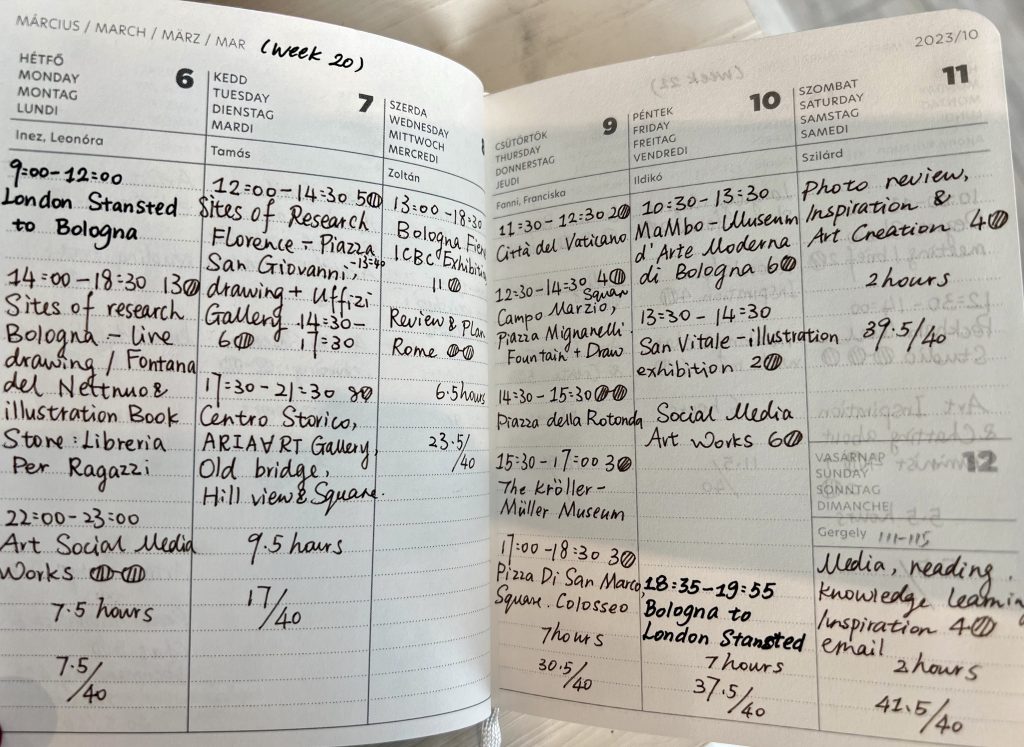 MÁRCIUS / MARCH / MÄRZ / MAR (Week 20)
HÉTFŐ
MONDAY
MONTAG
LUNDI
6
Inez, Leonóra
9:00-12:00
London Stansted
to Bologna
14:00-18:30 13
Sites of research
Bologna - Live
drawing / Fontana
del Nettnuo &
illustration Book
Store: Libreria
Per Ragazzi
22:00-23:00
Art Social Media
Works
7.5 hours
7.5/40
KEDD
TUESDAY
DIENSTAG
MARDI
7
Tamás
12:00-14:30 5
Sites of Research
Florence - Piazza
-13:40
San Giovanni,
drawing + Uffizi
Gallery 14:30-
6 17:30
17:30-21:30 8
Centro Storico,
ARIA∀RT Gallery,
Old bridge,
Hill view & Square.
9.5 hours
17/40
SZERDA
WEDNESDAY
MITTWOCH
MERCREDI
Zoltán
13:00-18:30
Bologna
ICBC
11
Review & Plan
Rome
6.5 hours
23.5/40
2023/10
CSÜTÖRTÖK
THURSDAY
DONNERSTAG
JEUDI
9
Fanni, Franciska
11:30-12:30 2
Città del Vaticano
12:30-14:30 4
Square
Campo Marzio,
Piazza Mignanelli
Fountain + Draw
14:30-15:30
Piazza della Rotonda
15:30-17:00 3
The Kröller-
Müller Museum
17:00-18:30 3
Pizza Di San Marco,
Square. Colosseo
7hours
30.5/40
PÉNTEK
FRIDAY
FREITAG
VENDREDI
10
Ildikó
10:30-13:30
MaMbo - Museum
d'Arte Moderna
di Bologna 6
13:30-14:30
San Vitale - illustration
exhibition 2
Social Media
Art Works 6
18:35-19:55
Bologna to
London Stansted
7 hours
37.5/40
SZOMBAT
SATURDAY
SAMSTAG
SAMEDI
11
Szilárd
Photo review,
Inspiration &
Art Creation 4
2 hours
39.5/40
VASÁRNAP
SUNDAY
SONNTAG
DIMANCHE
12
Gergely
Media, reading.
knowledge
Inspiration 4
email
2 hours
41.5/40